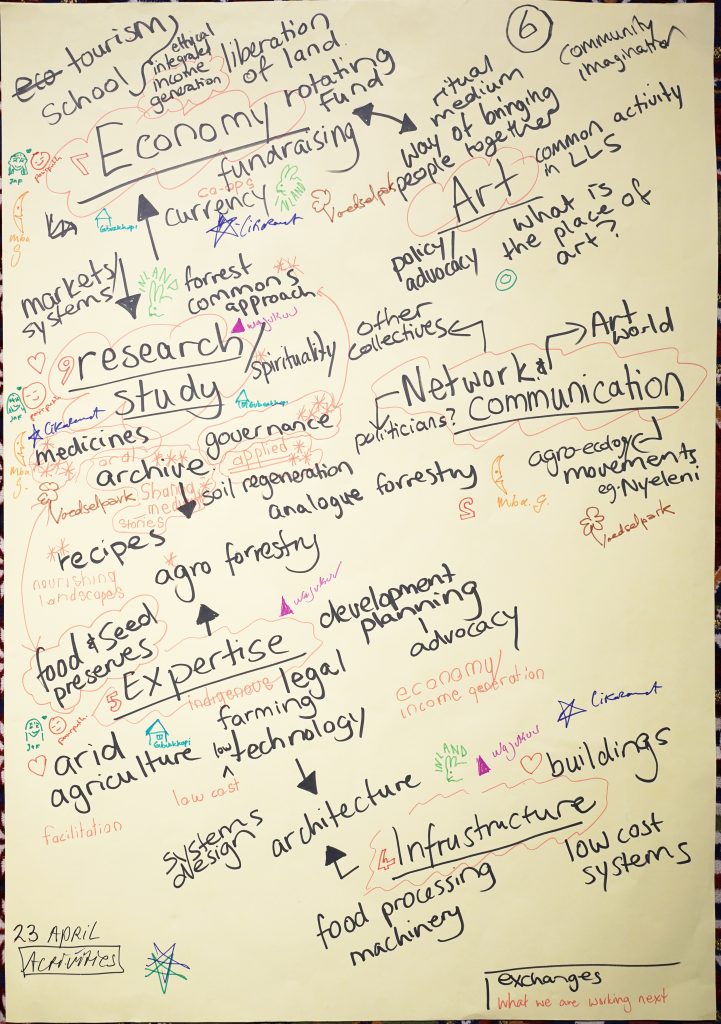 eco tourism
school
ethical
integrated
income
generation
liberation
of land
6
community
imagination
7
Economy
rotating
fund
fundraising
co-ops
currency
INLAND
Cikaramat
Voedselpark
Jaf
pompush
Mba
G.
Gubukkopi
ritual
medium
way of bringing
people together
common activity
in LLS
Art
policy/
advocacy
what is
the place of
art?
markets/
systems
INLAND
forrest
commons
approach
wajukuu
9
research/
study
spirituality
Gubukkopi
Jaf
pompush
Cikaramat
Mba
G.
Voedselpark
medicines
governance
oral
archive
applied
Sharing
media
Stories
soil regeneration
analogue forrestry
other
collectives
Art
world
Network &
communication
politicians?
agro-ecology
movements
eg. Nyeleni
2
Mba. G.
Voedselpark
recipes
nourishing
landscapes
agro forrestry
food & seed
preserves
wajukuu
development
planning
advocacy
5
Expertise
indigenous
legal
farming
low technology
low cost
economy/
income generation
Jaf
pompush
Gubukkopi
arid
agriculture
facilitation
Cikaramat
INLAND
wajukuu
buildings
systems
design
architecture
4
Infrustructure
low cost
systems
food processing
machinery
23 APRIL
ACTIVITIES
exchanges
what we are working next